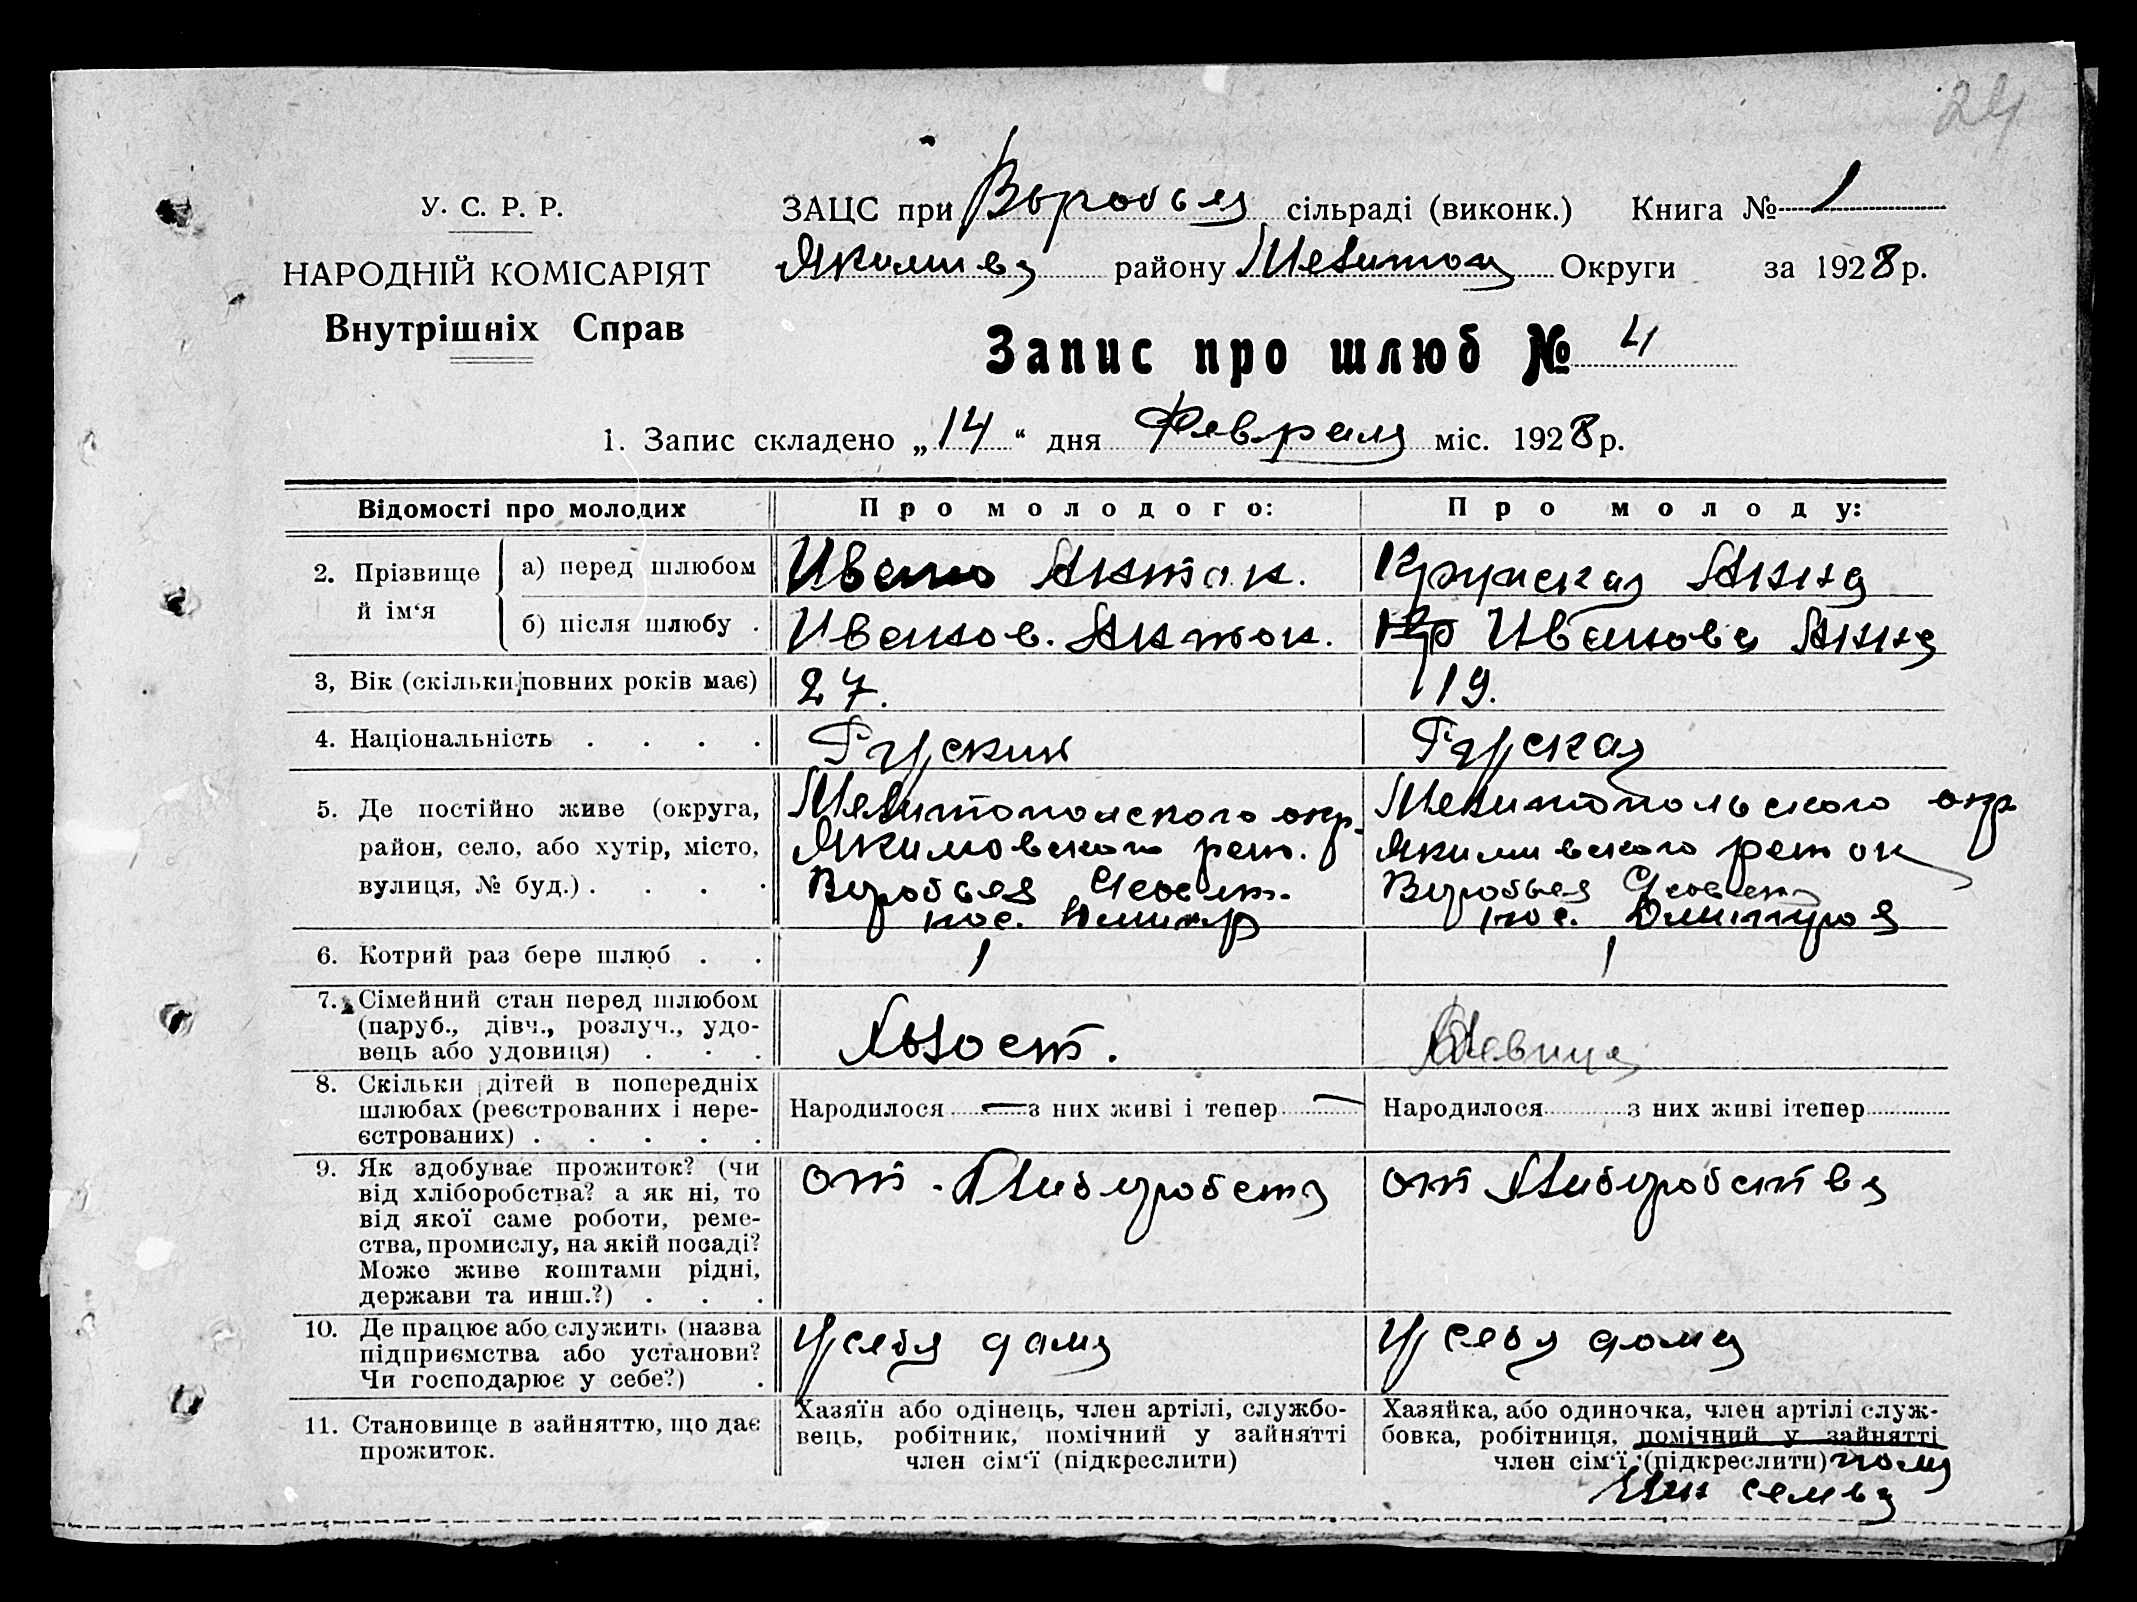 24
У. С. Р. Р.
НАРОДНІЙ КОМІСАРІЯТ
Внутрішніх Справ
ЗАЦС при Воробьев сільраді (виконк.) Книга № 1
Якимив району Мелитоп Округи за 1928 р.
Запис про шлюб № 4
1. Запис складено „14“ дня Февраля міс. 1928 р.
Відомості про молодих Про молодого: Про молоду:
2. Прізвище й ім‘я
а) перед шлюбом Антон. Крупская Анна
б) після шлюбу . Иванов. Антон. Кр Иванова Анна
3, Вік (скільки повних років має) 27. 19.
4. Національність . . . . Русский Русская
5. Де постійно живе (округа, район, село, або хутір, місто, вулиця, № буд.) . . . .
Мелитополского окр.
Якимовского
пос.
Мелитопольского окр
Якимивского
пос.
6. Котрий раз бере шлюб . . 1 1
7. Сімейний стан перед шлюбом
(паруб., дівч., розлуч., удо-
вець або удовиця) . . .
Холост. Девица
8. Скільки дітей в попередніх
шлюбах (реєстрованих і нере-
єстрованих) . . . . .
Народилося — з них живі і тепер —
Народилося з них живі ітепер
9. Як здобуває прожиток? (чи
від хліборобства? а як ні, то
від якої саме роботи, реме-
ства, промислу, на якій посаді?
Може живе коштами рідні,
держави та инш.?) . . .
от Хлиборобств от Хлиборобства
10. Де працює або служить (назва
підприємства або установи?
Чи господарює у себе?) .
У себя дома У себя дома
11. Становище в зайняттю, що дає
прожиток.
Хазяїн або одінець, член артілі, службо-
вець, робітник, помічний у зайнятті
член сім‘ї (підкреслити)
Хазяйка, або одиночка, член артілі служ-
бовка, робітниця, помічний у зайнятті
член сім‘ї (підкреслити)